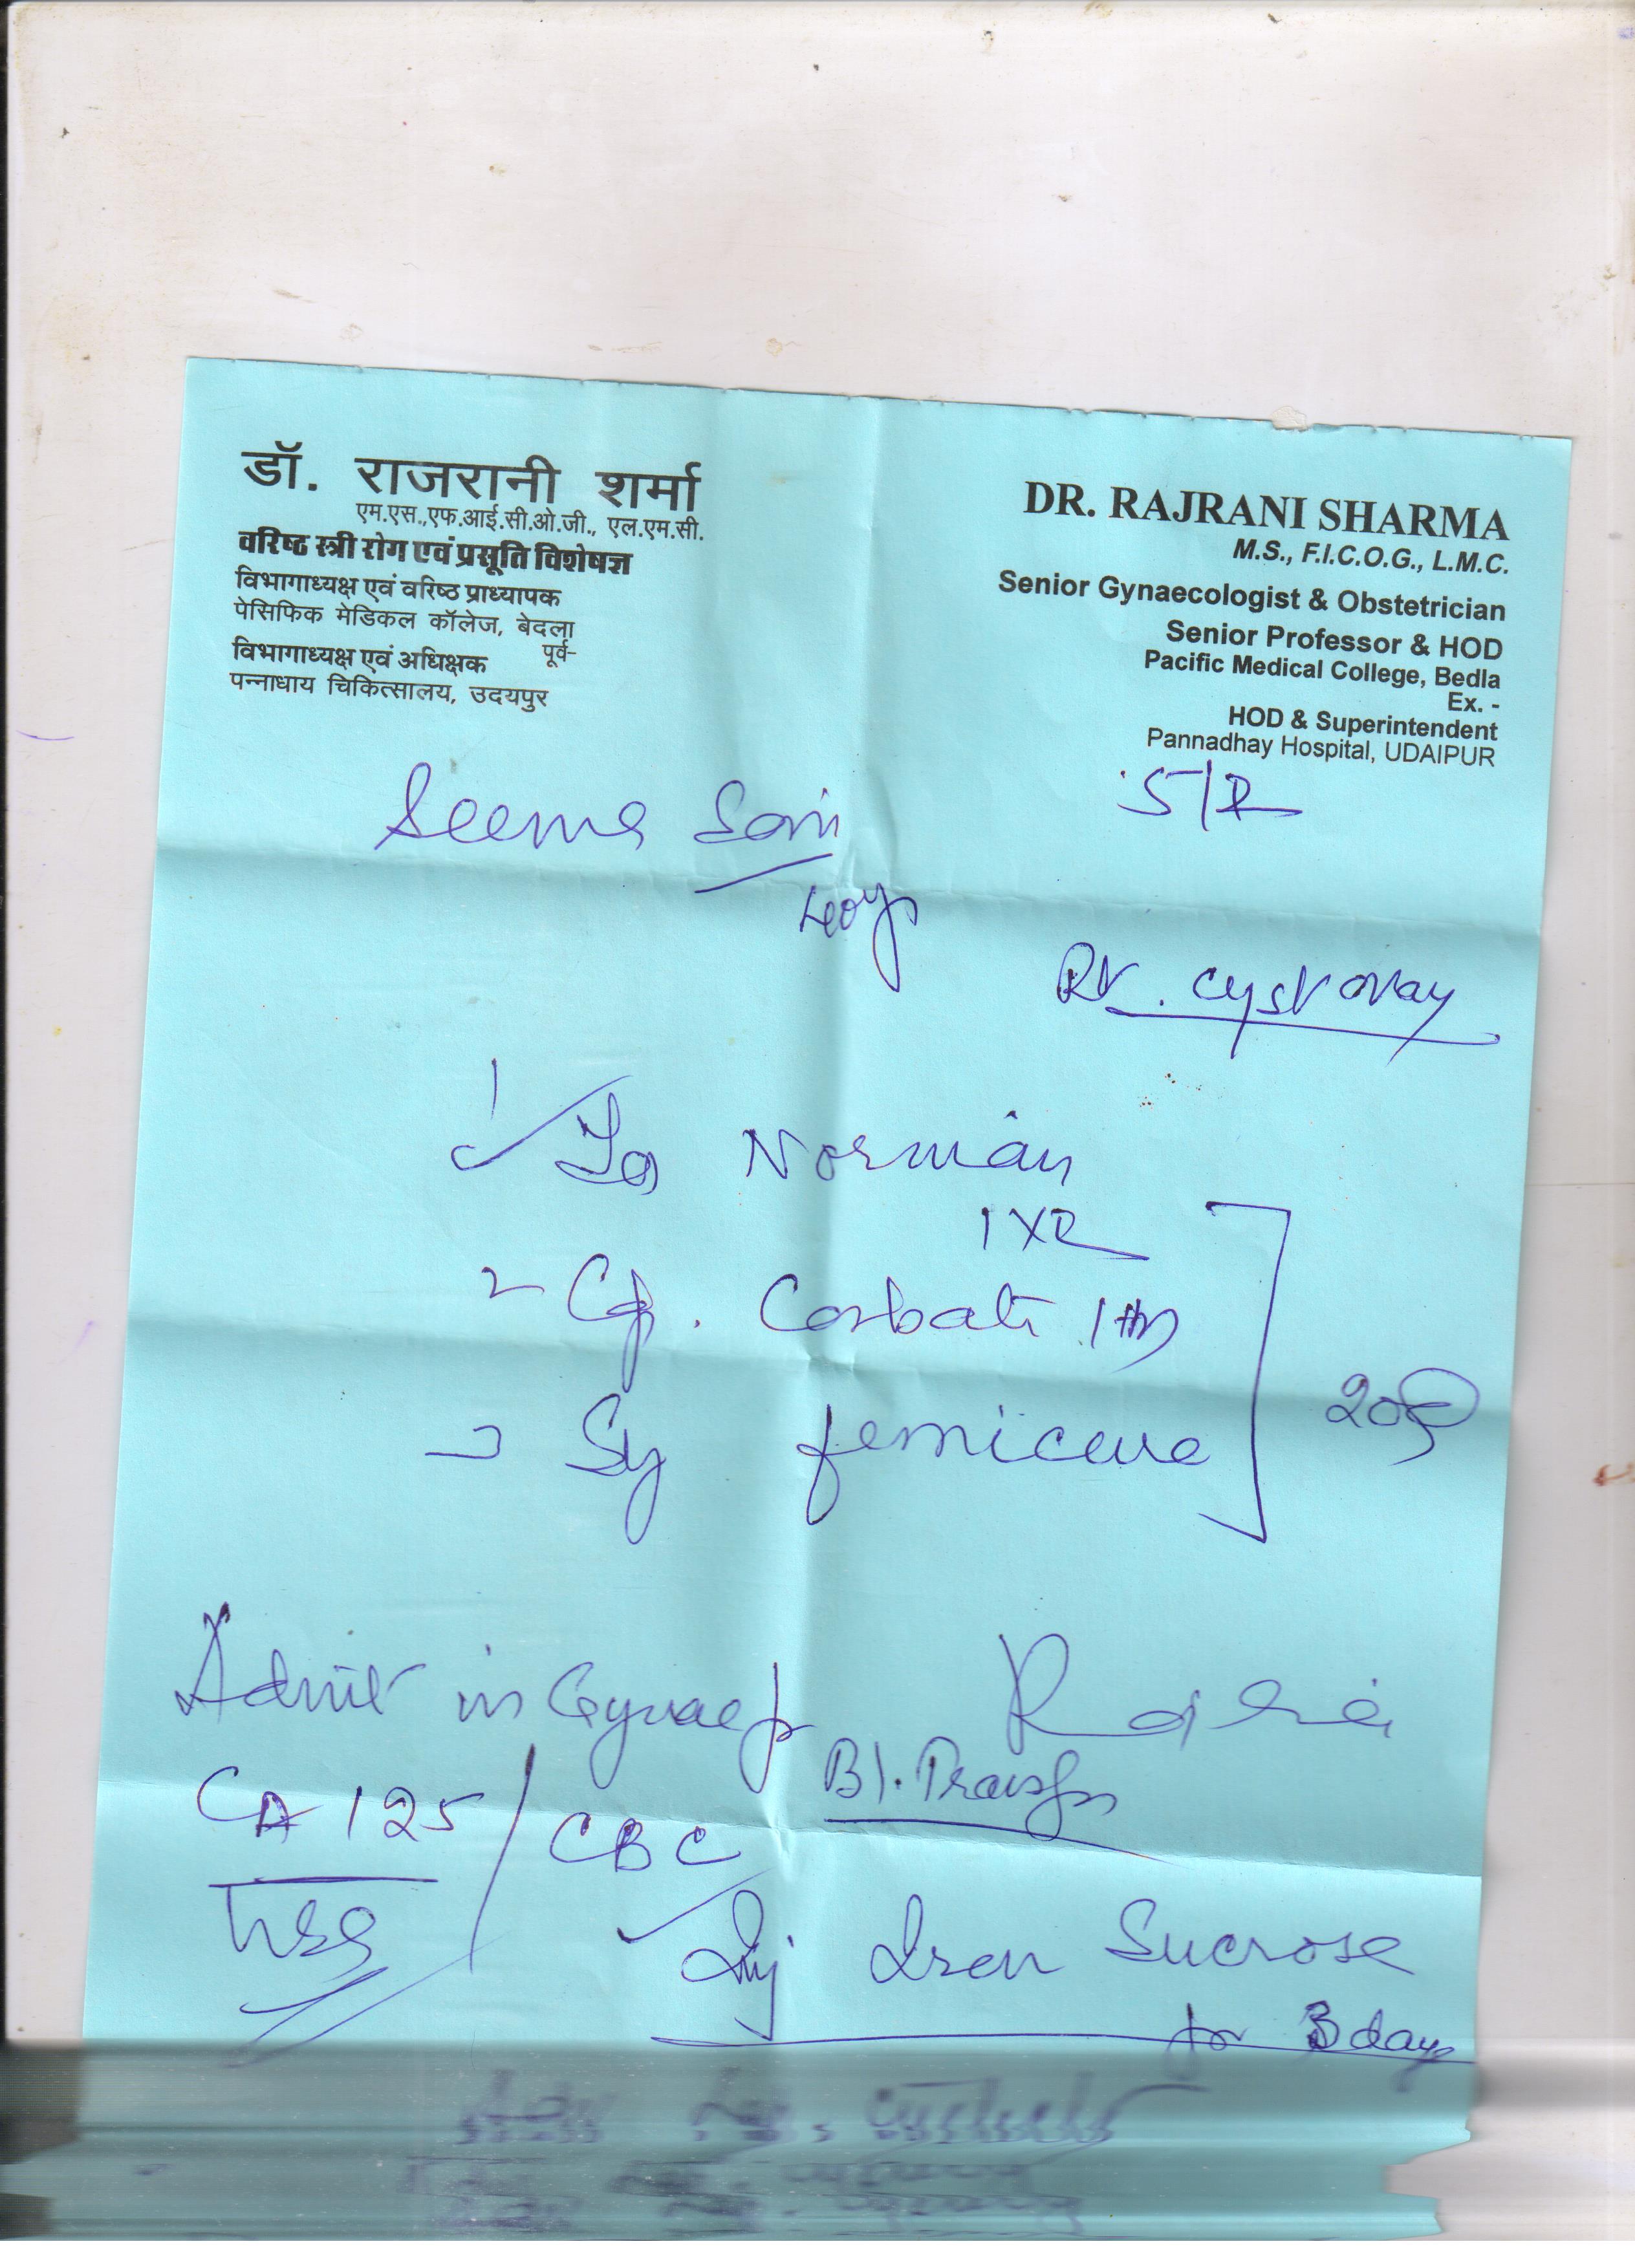 डॉ. राजरानी शर्मा
एम.एस.,एफ.आई.सी.ओ.जी., एल.एम.सी.
वरिष्ठ स्त्री रोग एवं प्रसूति विशेषज्ञ
विभागाध्यक्ष एवं वरिष्ठ प्राध्यापक
पेसिफिक मेडिकल कॉलेज, बेदला
पूर्व-
विभागाध्यक्ष एवं अधिक्षक
पन्नाधाय चिकित्सालय, उदयपुर
DR. RAJRANI SHARMA
M.S., F.I.C.O.G., L.M.C.
Senior Gynaecologist & Obstetrician
Senior Professor & HOD
Pacific Medical College, Bedla
Ex. -
HOD & Superintendent
Pannadhay Hospital, UDAIPUR
Seema Soni
40y
Rt. cyst ovary
1
Norman
1X2
2 Cp. Corbate
3 Sy femicure
Admit in Gynae for
Bl. Transfn
CA 125 / CBC
Inj Iron Sucrose
for 3 days